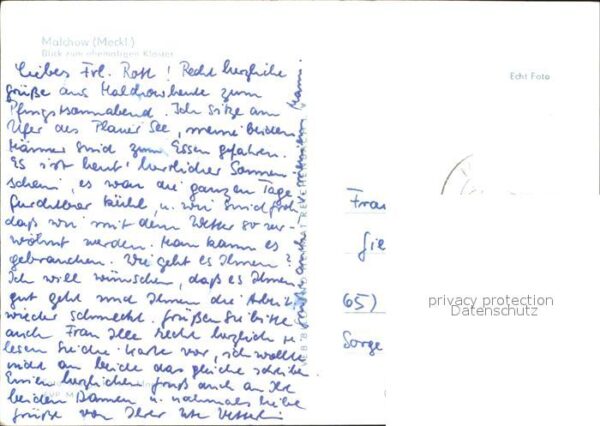 Malchow (Meckl.)
Blick zum ehemaligen Kloster
Liebes Frl. Roth! Recht herzliche
Grüße aus Malchow heute zum
Pfingstsonnabend. Ich sitze am
Ufer des Plauer See, meine beiden
Männer sind zum Essen gefahren.
Es ist heut' herrlicher Sonnen-
schein, es war die ganzen Tage
furchtbar kühl, u. wir sind froh
daß wir mit dem Wetter so ver-
wöhnt werden. Man kann es
gebrauchen. Wie geht es Ihnen?
Ich will wünschen, daß es Ihnen
gut geht und Ihnen die Arbeit
wieder schmeckt. Grüßen Sie bitte
auch Frau Ille recht herzlich u.
lesen Sie die Karte vor, ich wollte
nicht an beide das gleiche schreiben.
Einen herzlichen Gruß auch an Ihre
beiden Damen u. nochmals liebe
Grüße von Ihrer
Echt Foto
Frau
65)
Sorge
privacy protection
Datenschutz